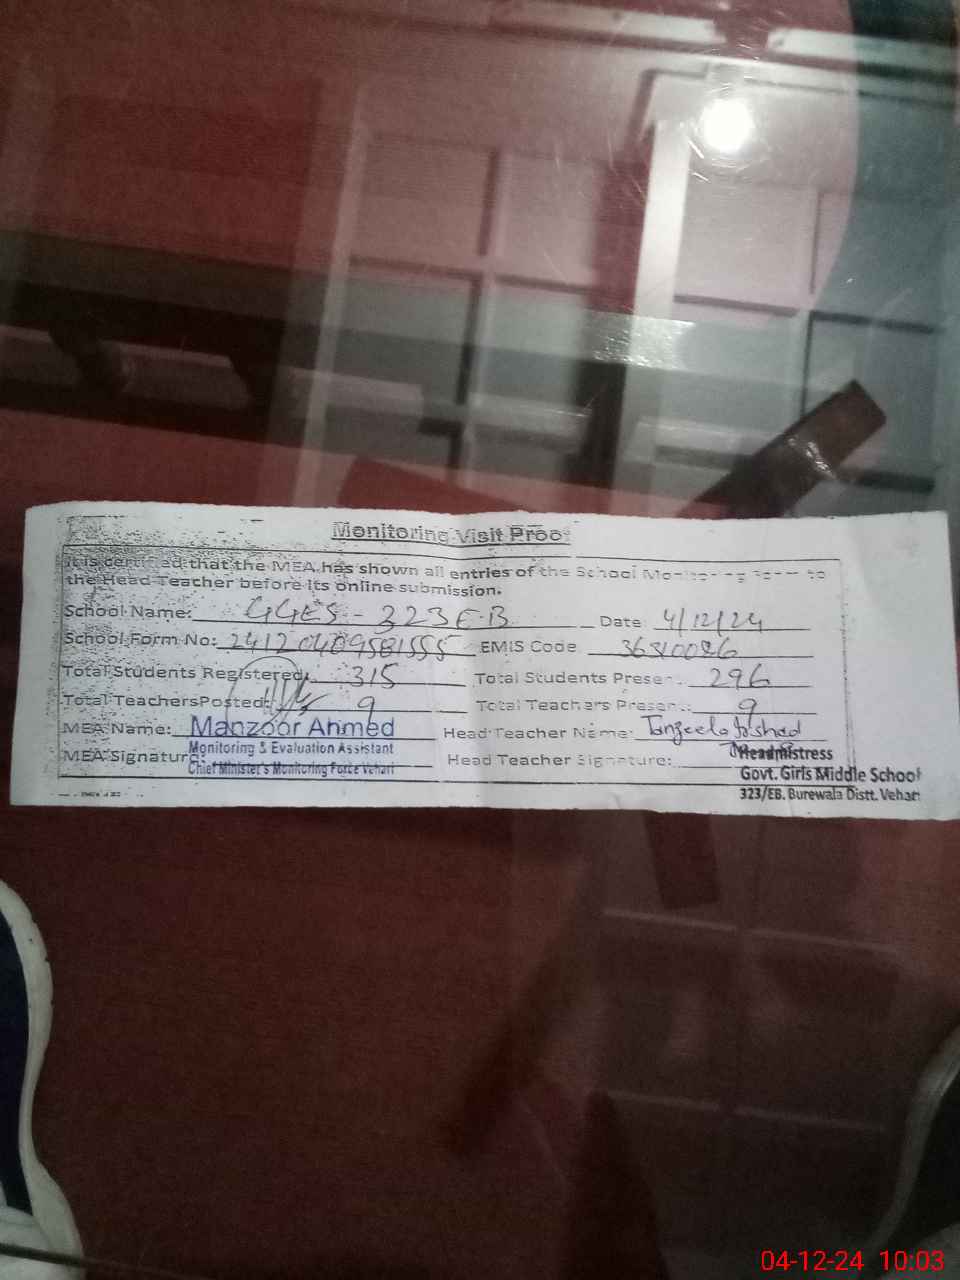 Monitoring Visit Proof
It is certified that the MEA has shown all entries of the School Monitoring form to
the Head Teacher before its online submission.
School Name: GGES - 323 E.B Date 4/12/24
School Form No: EMIS Code 36310026
Total Students Registered: 315 Total Students Present: 296
Total TeachersPosted: 9 Total Teachers Present: 9
MEA Name: Manzoor Ahmed Head Teacher Name: Tanzeela Irshad
Monitoring & Evaluation Assistant
MEA Signature: Chief Minister's Monitoring Force Vehari Head Teacher Signature: Headmistress
Govt. Girls Middle School
323/EB. Burewala Distt. Vehari
04-12-24 10:03